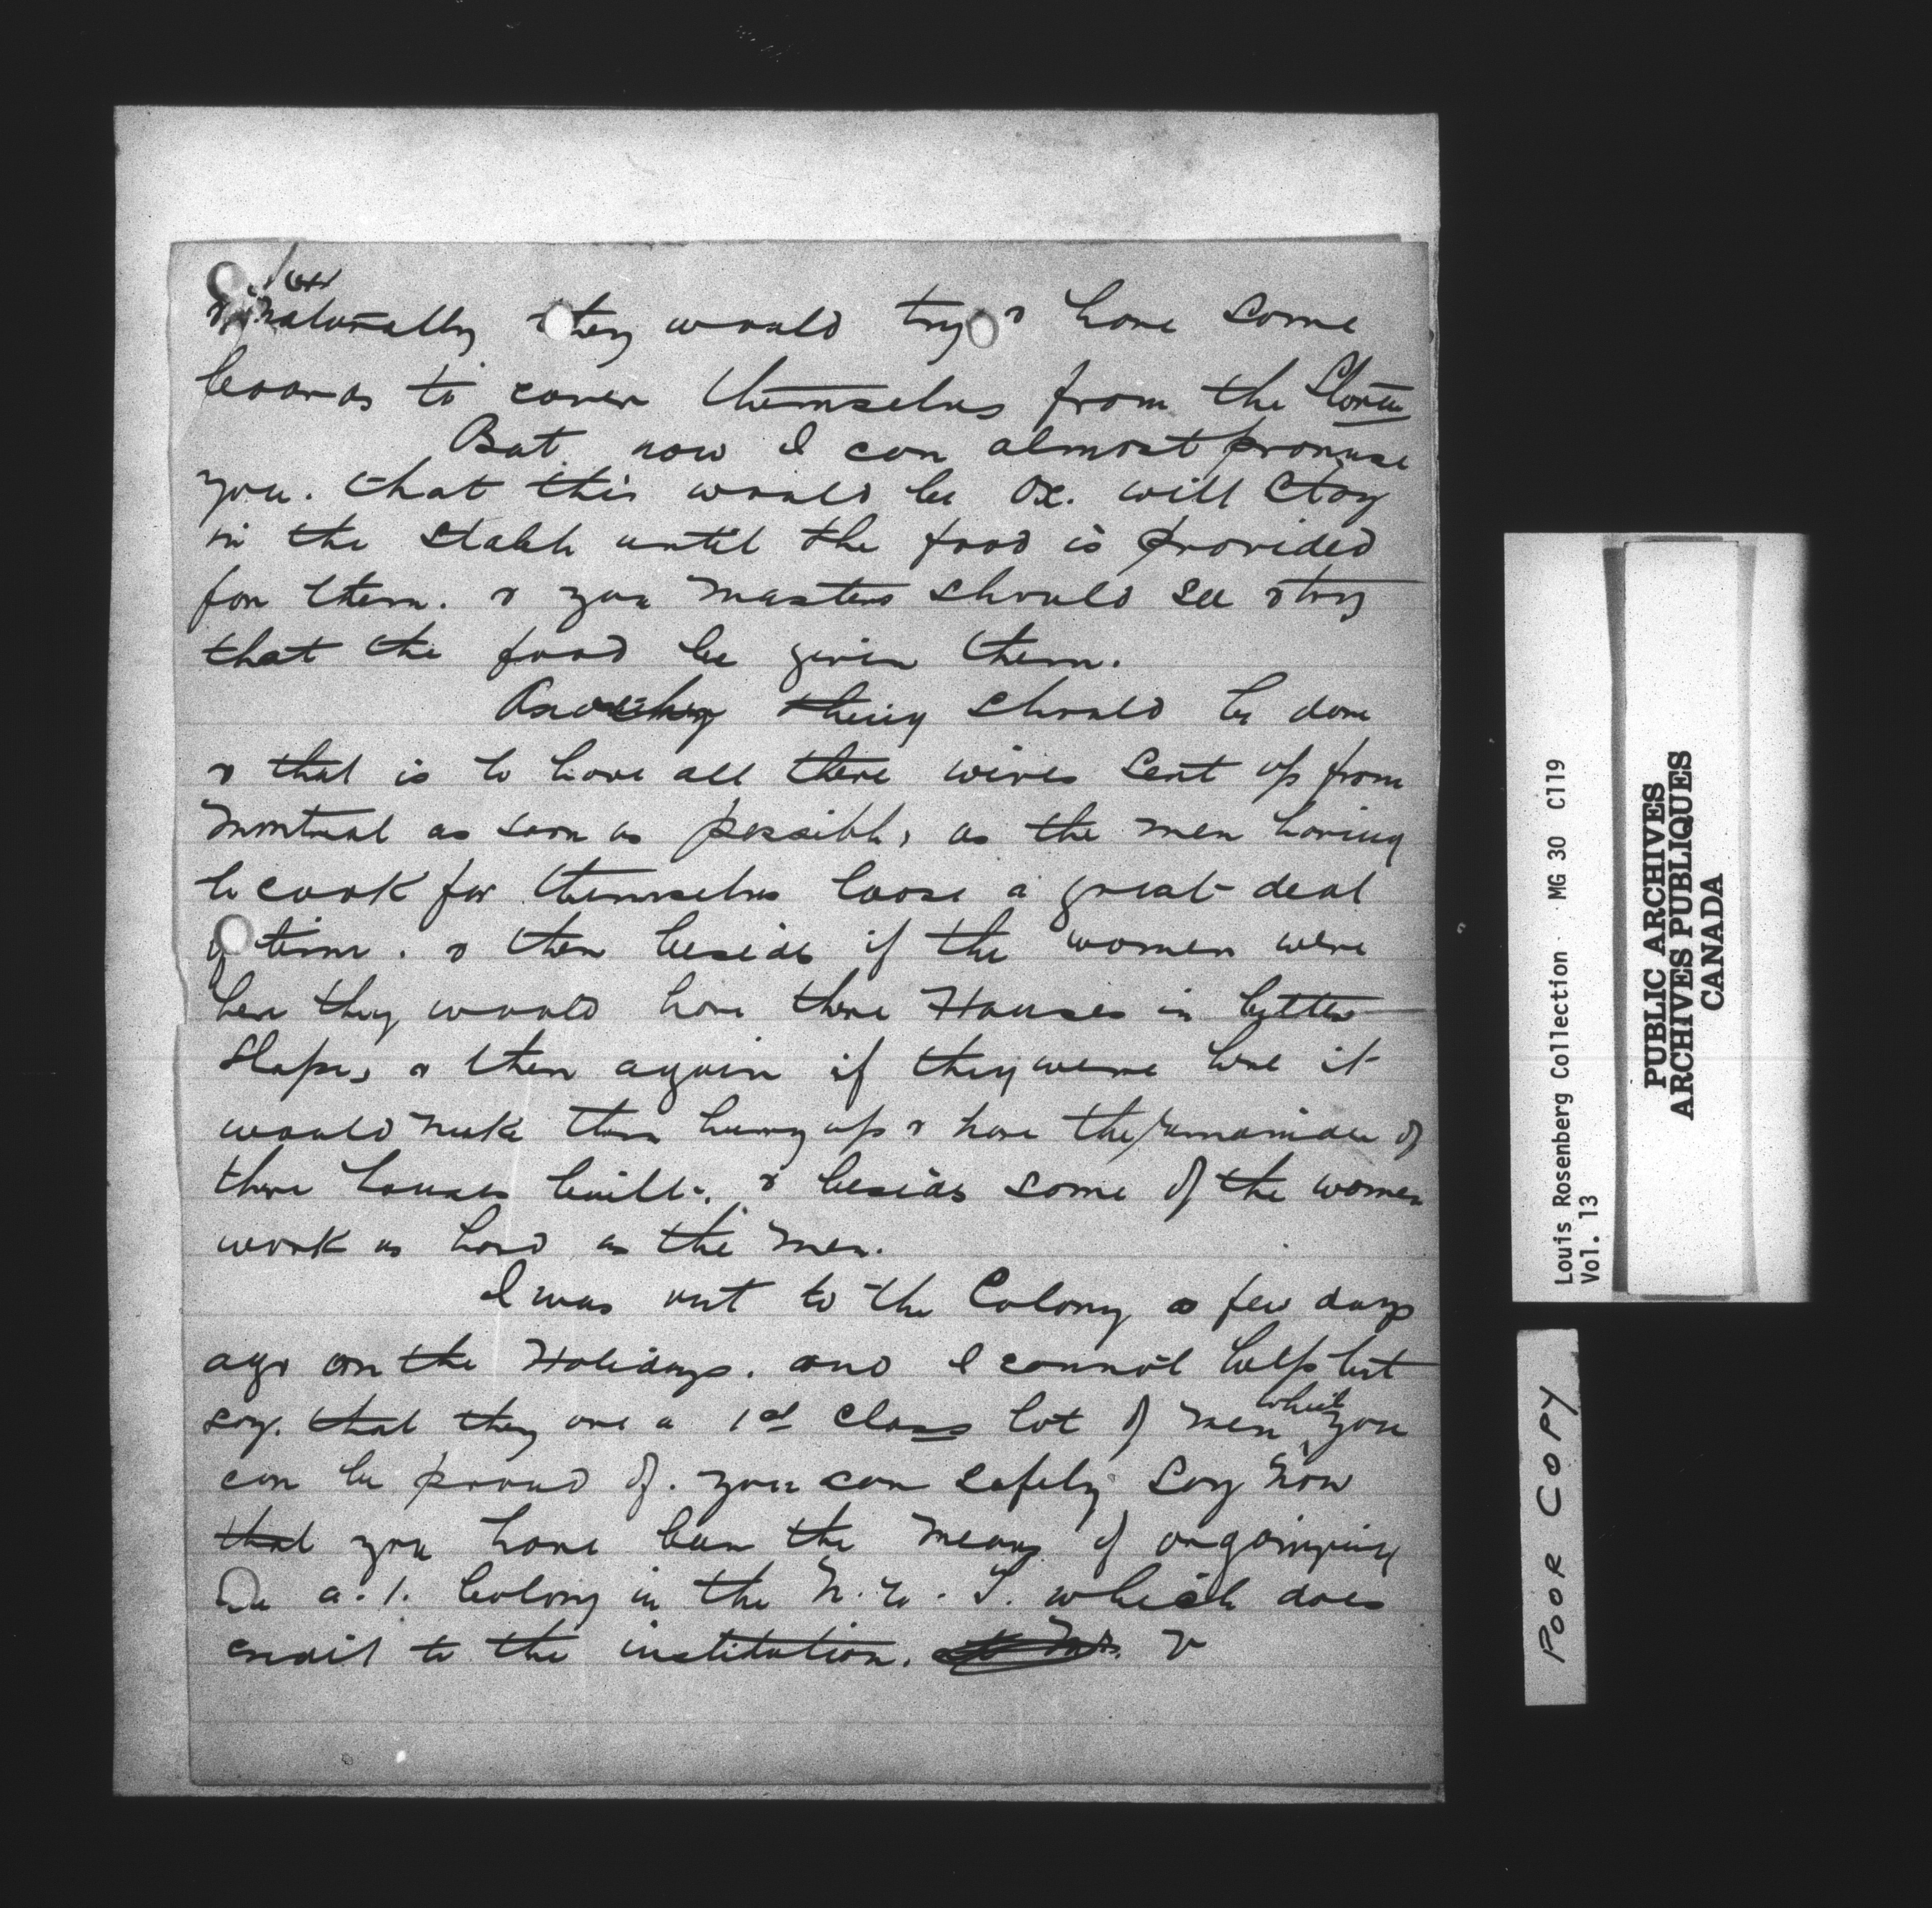 naturally they would try & have some
boards to cover themselves from the Storm
But now I can almost promise
you. that this would be Ox. will Stay
in the Stable until the food is provided
for them. & you Masters should see & try
that the food be given them.
Another thing should be done
& that is to have all there wives Sent up from
Montreal as soon as possible, as the men having
to cook for themselves loose a great deal
of time. & then besides if the women were
here they would have there Houses in better
Shape, & then again if they were here it
would make them hurry up & have the remainder of
there houses built. & besides some of the women
work as hard as the men.
I was out to the Colony a few days
ago on the Holidays. and I cannot help but
say. that they are a 1st Class lot of men which you
can be proud of. you can safely Say Now
that you have been the means of
a. 1. Colony in the N. W. T. which does
credit to the institution. &
Louis Rosenberg Collection MG 30 C119
Vol. 13
PUBLIC ARCHIVES
ARCHIVES PUBLIQUES
CANADA
POOR COPY